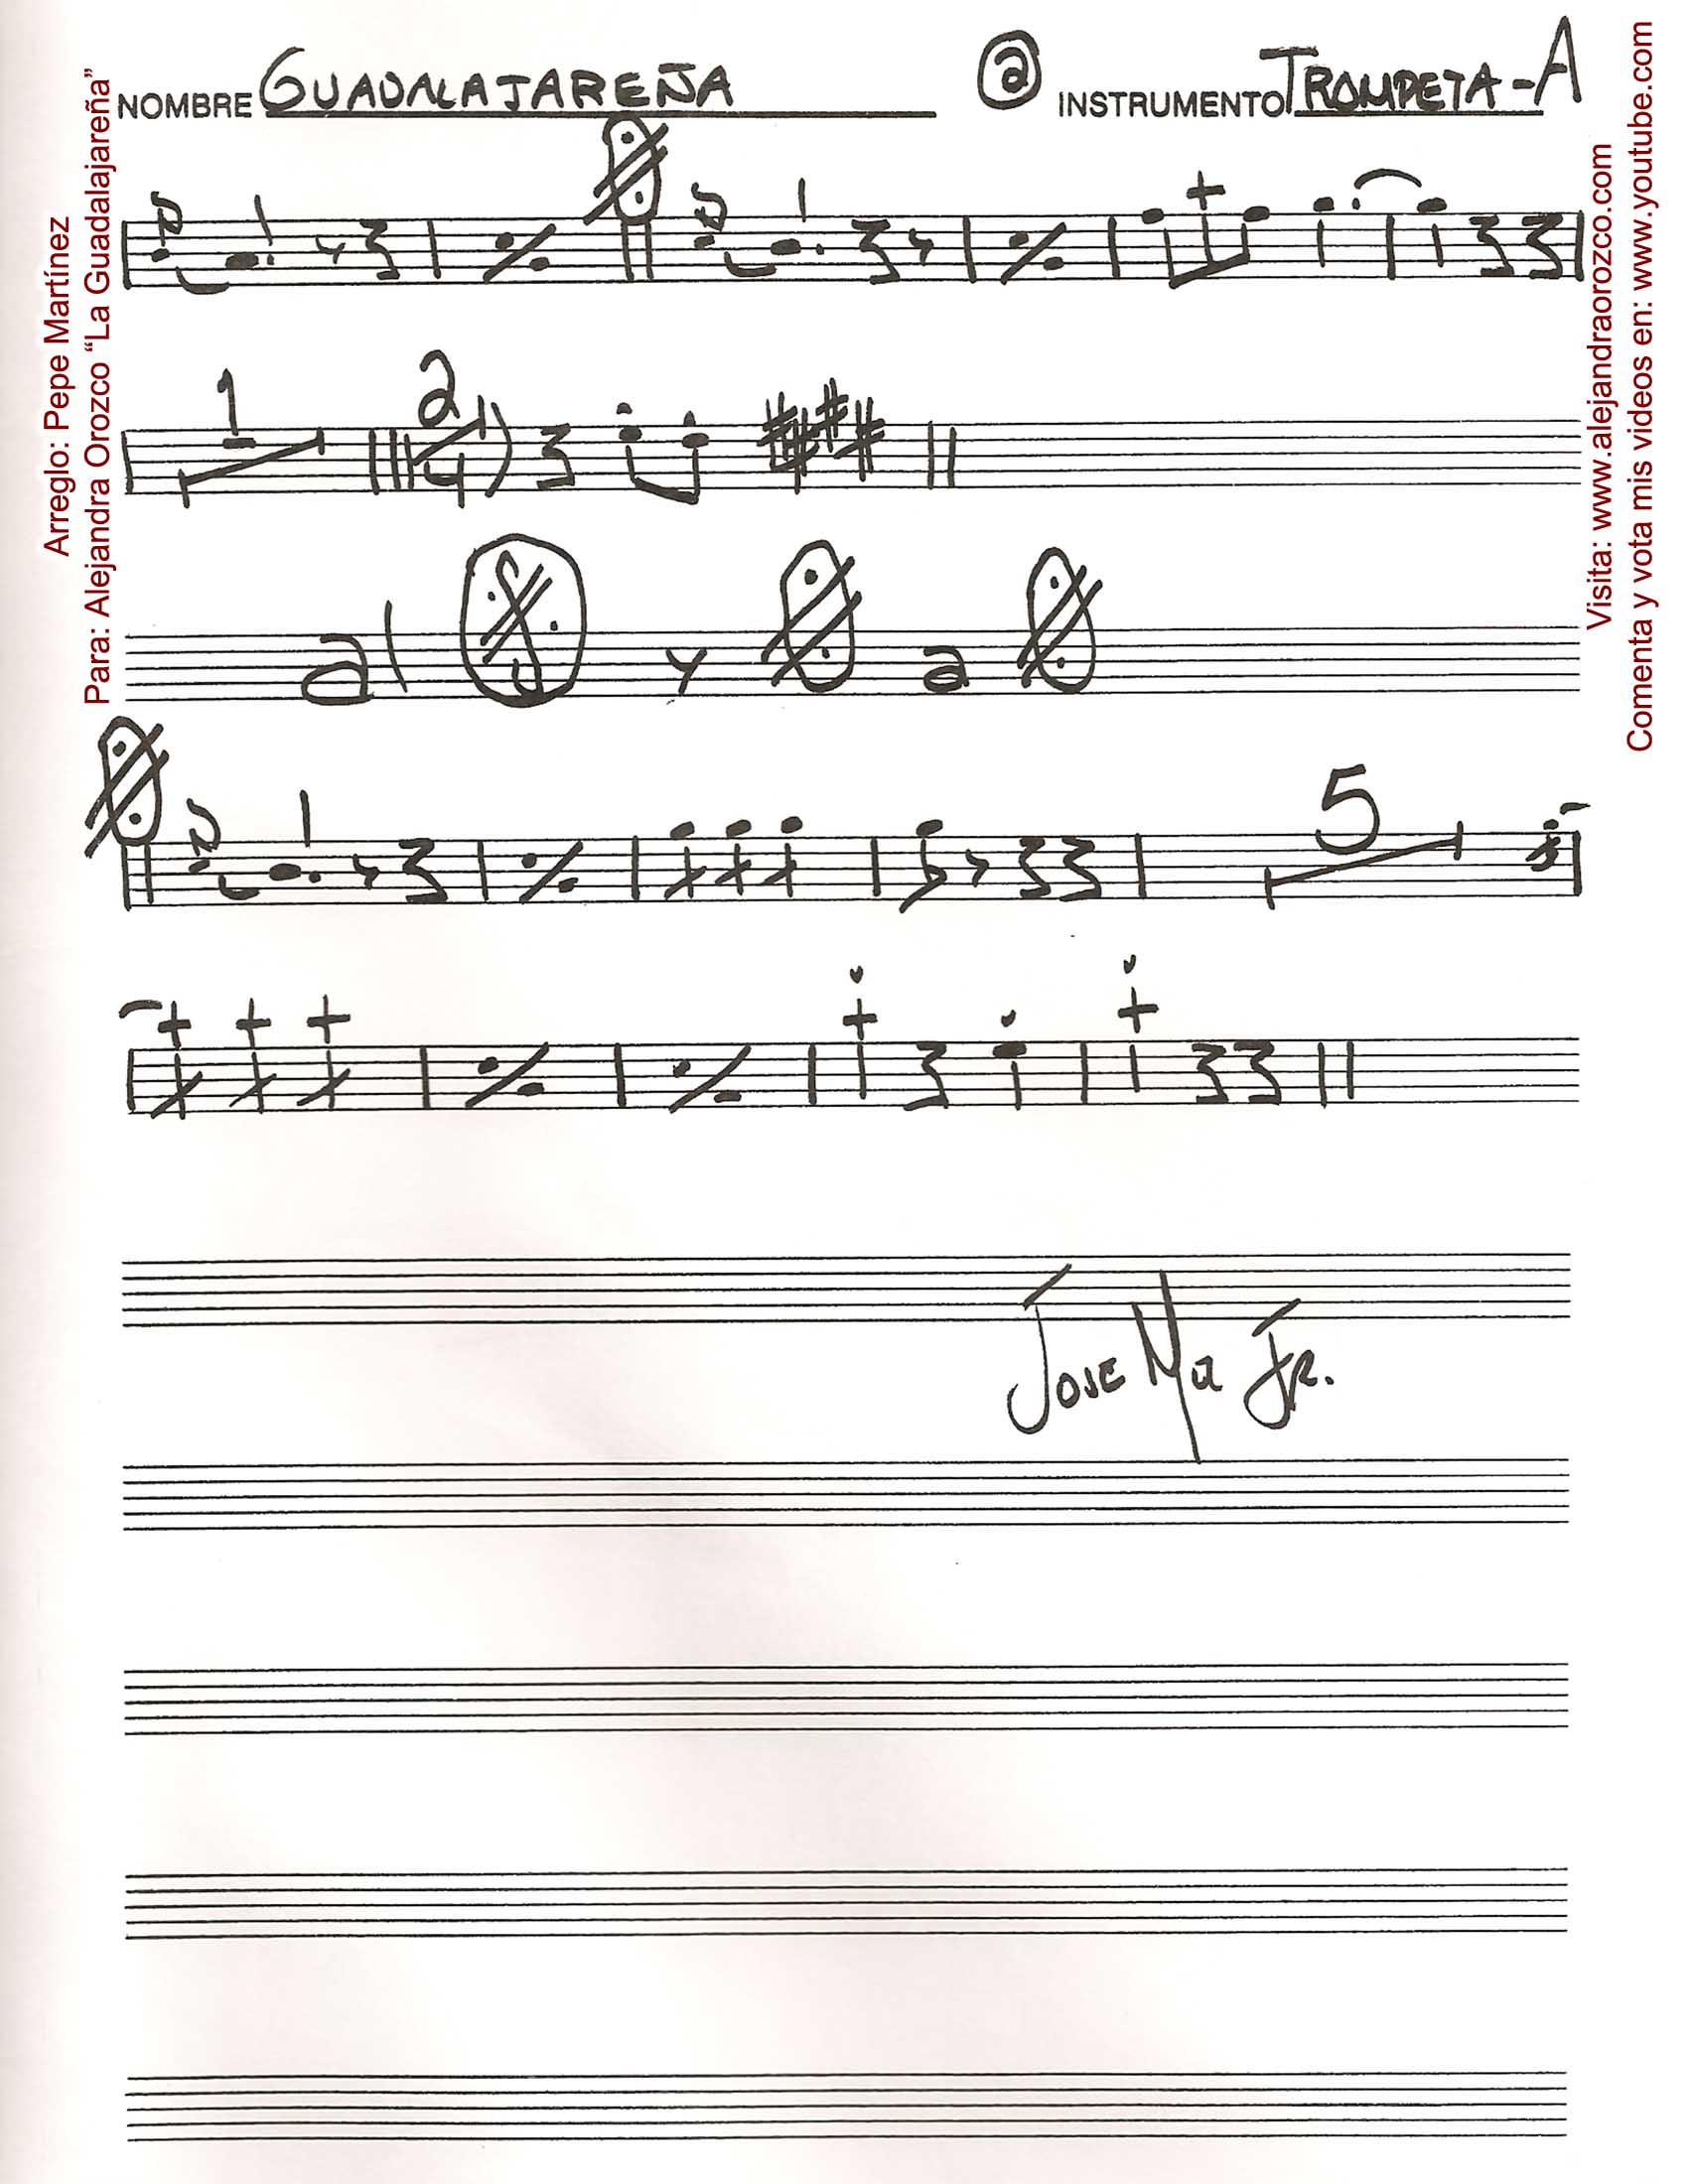 NOMBRE GUADALAJAREÑA
② INSTRUMENTO TROMPETA-A
Arreglo: Pepe Martínez
Para: Alejandra Orozco “La Guadalajareña”
Visita: www.alejandraorozco.com
Comenta y vota mis videos en: www.youtube.com
1
2
4
al y a
5
JOSE Ma JR.